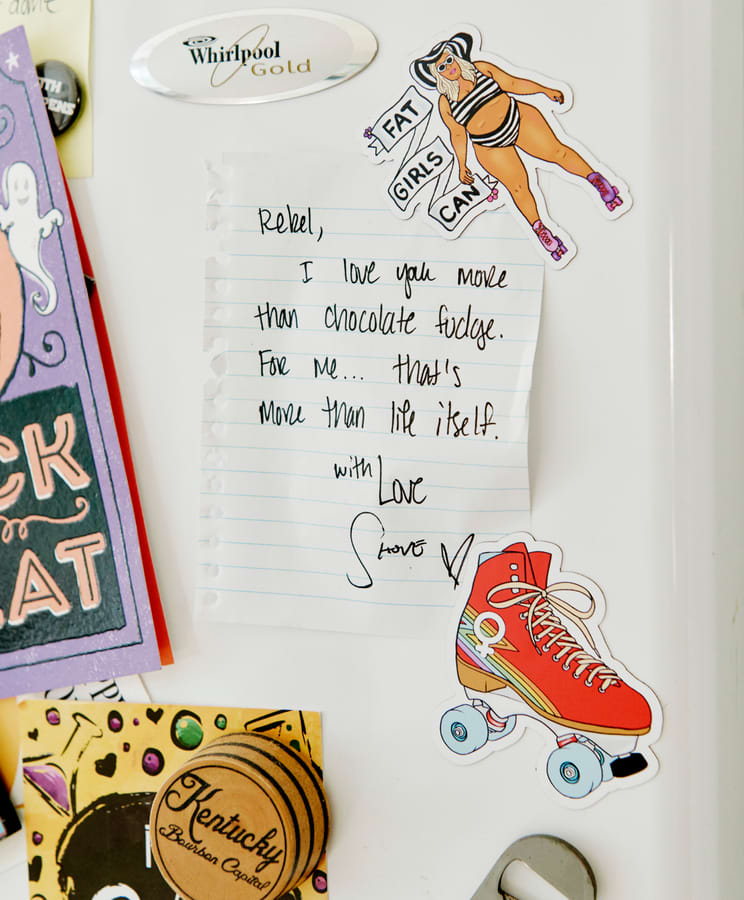 Whirlpool
Gold
FAT
GIRLS
CAN
Rebel,
I love you more
than chocolate fudge.
For me... that's
more than life itself.
with Love
Shove
CK
EAT
Kentucky
Bourbon Capital